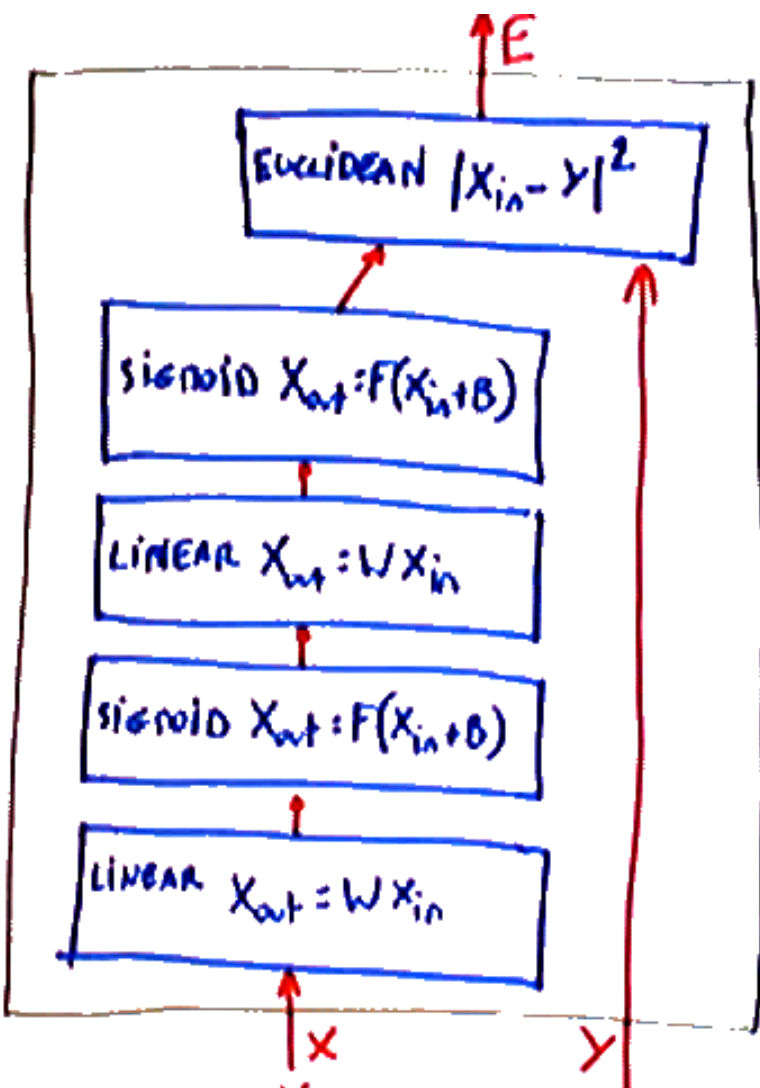 E
EUCLIDEAN |Xin - Y|²
SIGMOID Xout = F(Xin + B)
LINEAR Xout = W Xin
SIGMOID Xout = F(Xin + B)
LINEAR Xout = W Xin
X Y